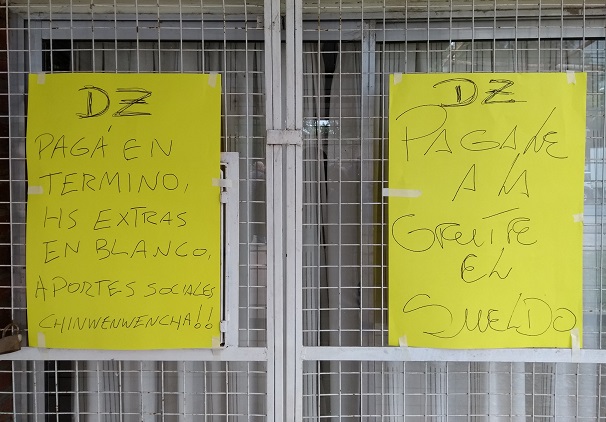 DZ
PAGÁ EN
TERMINO,
HS EXTRAS
EN BLANCO,
APORTES SOCIALES
CHINWENWENCHA!!
DZ
PAGALE
A LA
GENTE
EL
SUELDO